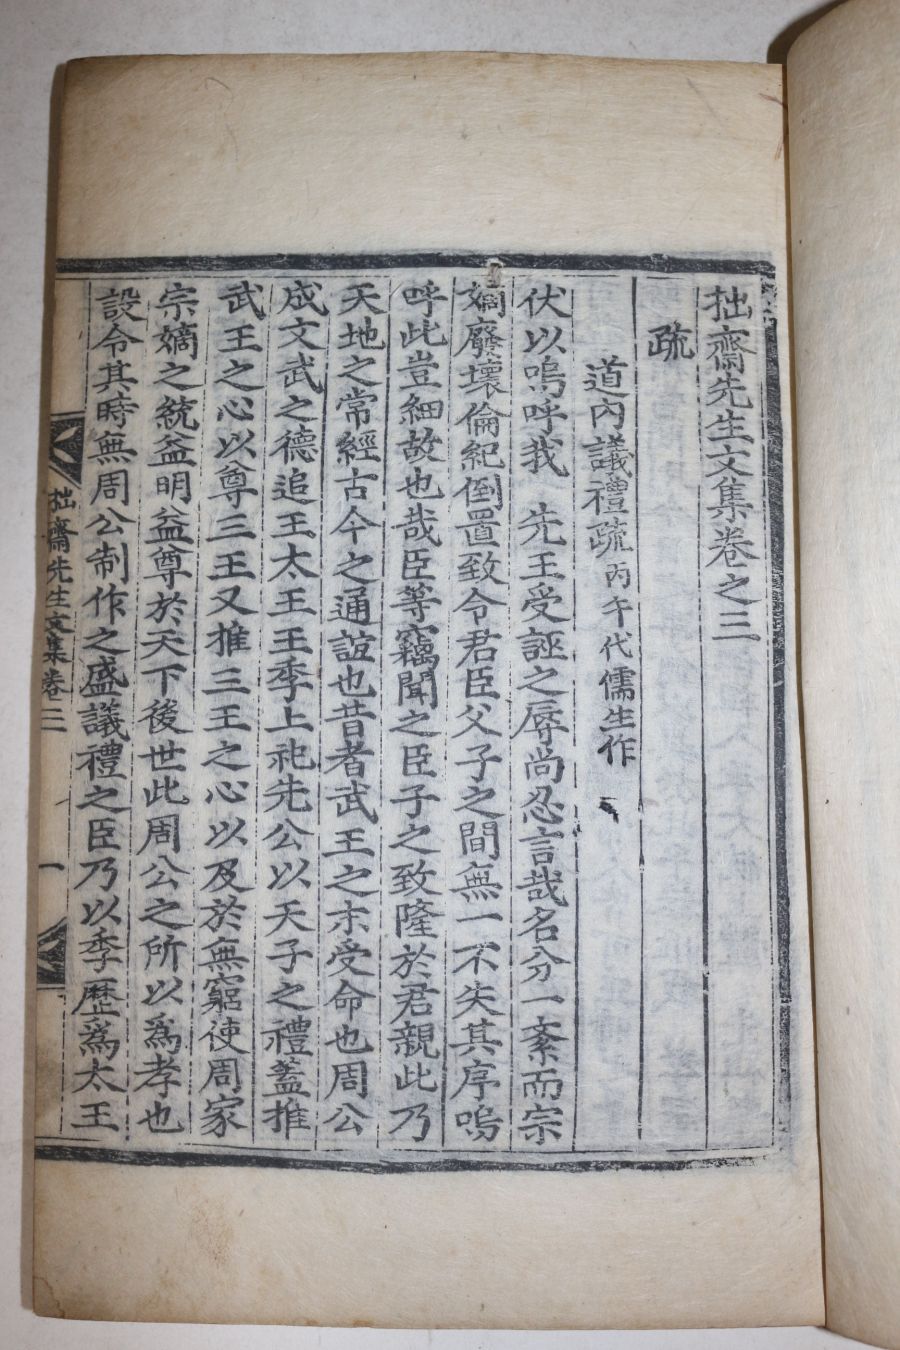 拙齋先生文集卷之三
疏
道內議禮疏丙午代儒生作
伏以嗚呼我 先王受誣之辱尚忍言哉名分一紊而宗
嫡廢壞倫紀倒置致令君臣父子之間無一不失其序嗚
呼此豈細故也哉臣等竊聞之臣子之致隆於君親此乃
天地之常經古今之通誼也昔者武王之末受命也周公
成文武之德追王太王王季上祀先公以天子之禮蓋推
武王之心以尊三王又推三王之心以及於無窮使周家
宗嫡之統益明益尊於天下後世此周公之所以爲孝也
設令其時無周公制作之盛議禮之臣乃以季歷爲太王
拙齋先生文集卷三
一